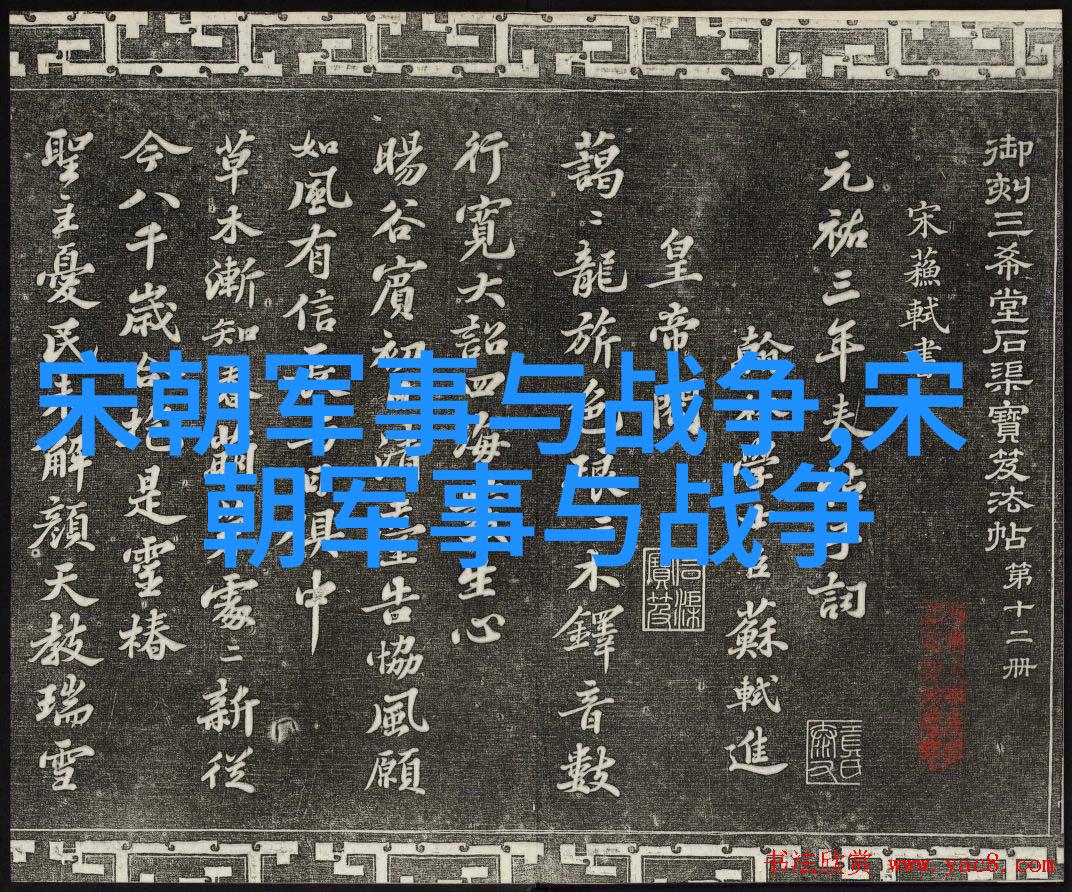 宋朝军事与战争,宋
朝军事与战争
御刻三希堂石渠寶笈法帖第十二册
宋蘇軾書
元祐三年 詞
學 蘇軾進
皇帝閣
藹〻龍旂色琅〻木鐸音數
行寬大詔四海 生心
暘谷賓初 告協風願
如風有信長 日俱中
草木漸知春 處〻新從
今八千歲合抱是靈椿
聖主憂民未解顏天教瑞雪
书法欣赏 www.yac8.com